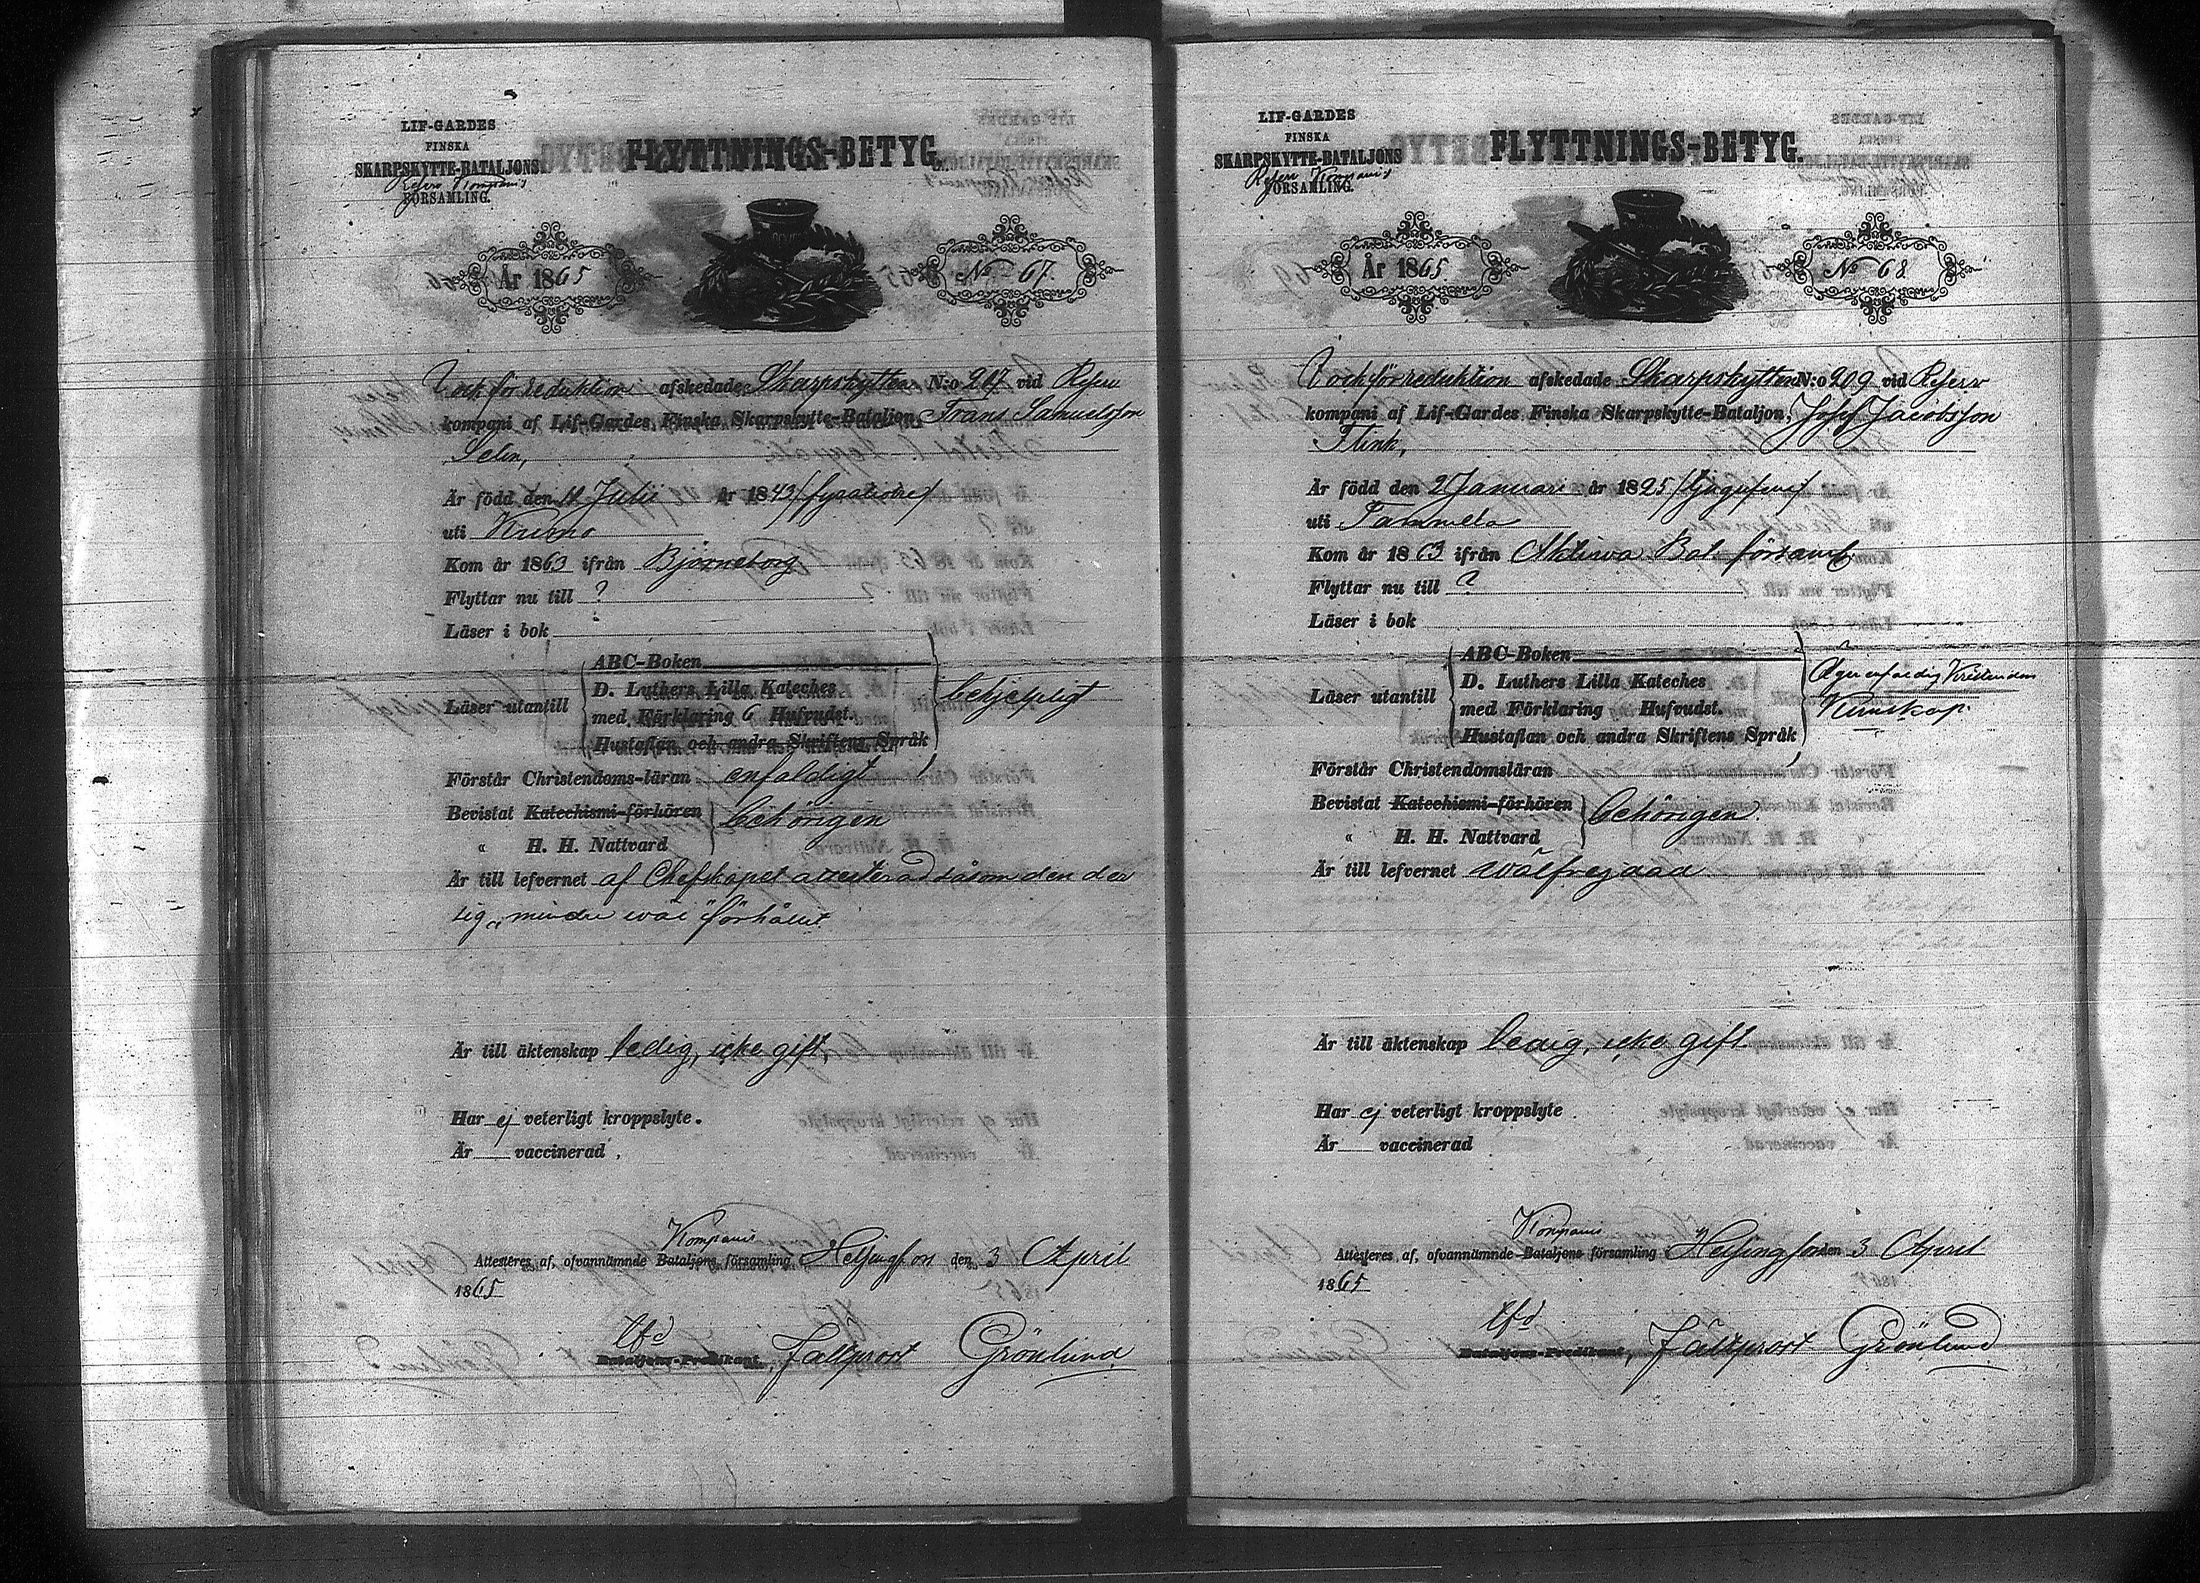 LIF-GARDES
FINSKA
SKARPSKYTTE-BATALJONS
Reserv Kompanis
FÖRSAMLING.
FLYTTNINGS-BETYG.
År 1865
No 67.
V och för reduktion afskedade Skarpskytten N:o 207 vid Reserv
kompani af Lif-Gardes Finska Skarpskytte-Bataljon, Frans Samuelsson
Selin,
Är född den 11 Julii år 1843 /fyratiotre/
uti Kiumo
Kom år 1863 ifrån Björneborg
Flyttar nu till ?
Läser i bok
ABC-Boken
Läser utantill D. Luthers Lilla Kateches
med Förklaring 6 Hufvudst.
Hustaflan och andra Skriftens Språk
behjelpligt
Förstår Christendoms-läran enfaldigt
Bevistat Katechismi-förhören behörigen
" H. H. Nattvard
Är till lefvernet af Chefskapet attesterad såsom den der
sig "mindre wäl" förhållit
Är till äktenskap ledig, icke gift,
Har ej veterligt kroppslyte.
Är vaccinerad.
Kompanis
Attesteras af, ofvannämnde Bataljons församling, Helsingfors den 3 April
1865
Tfd
Bataljons-Predikant, Fältprost Grönlund
LIF-GARDES
FINSKA
SKARPSKYTTE-BATALJONS
Reserv Kompanis
FÖRSAMLING.
FLYTTNINGS-BETYG.
År 1865
No 68
V och för reduktion afskedade Skarpskytten N:o 209 vid Reserv
kompani af Lif-Gardes Finska Skarpskytte-Bataljon, Josef Jacobsson
Flink,
Är född den 2 Januari år 1825 /tjugufem/
uti Tammela
Kom år 1863 ifrån Aktiwa Bat. församl.
Flyttar nu till ?
Läser i bok
ABC-Boken
Läser utantill D. Luthers Lilla Kateches
med Förklaring Hufvudst.
Hustaflan och andra Skriftens Språk
Äger enfaldig Kristendoms
Kunskap.
Förstår Christendomsläran
Bevistat Katechismi-förhören behörigen.
" H. H. Nattvard
Är till lefvernet wälfrejdad
Är till äktenskap ledig, icke gift
Har ej veterligt kroppslyte
Är vaccinerad
Kompanis
Attesteras af, ofvannämnde Bataljons församling Helsingfors den 3 April
1865
Tfd
Bataljons-Predikant, Fältprost Grönlund